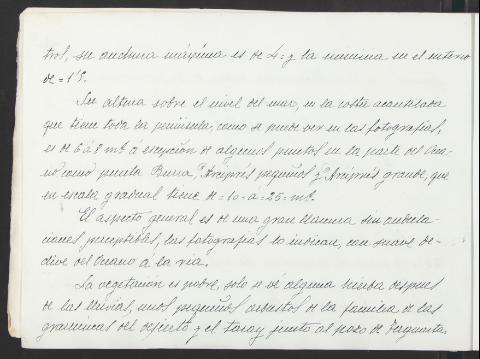 trol, su anchura máxima es de 4= y la minima en el interior
de = 1'5.
Su altura sobre el nivel del mar, en la costa acantilada
que tiene toda la peninsula, como se puede ver en las fotografias,
es de 6 á 8 mts á escepción de algunos puntos en la parte del Ocea-
no como punta Durna, Arciprés pequeño y Arciprés grande, que
en escala gradual tiene de = 10 = á = 25 = mts.
El aspecto general es de una gran llanura sin ondula-
ciones perceptibles, las fotografias lo indican, con suave de-
clive del Oceano á la ria.
La vegetación es pobre, solo se vé alguna hierba despues
de las lluvias, unos pequeños arbustos de la familia de las
gramineas del desierto y el taray junto al pozo de